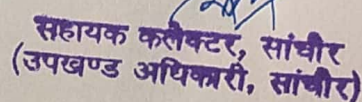 सहायक कलैक्टर, सांचौर
(उपखण्ड अधिकारी, सांचौर)